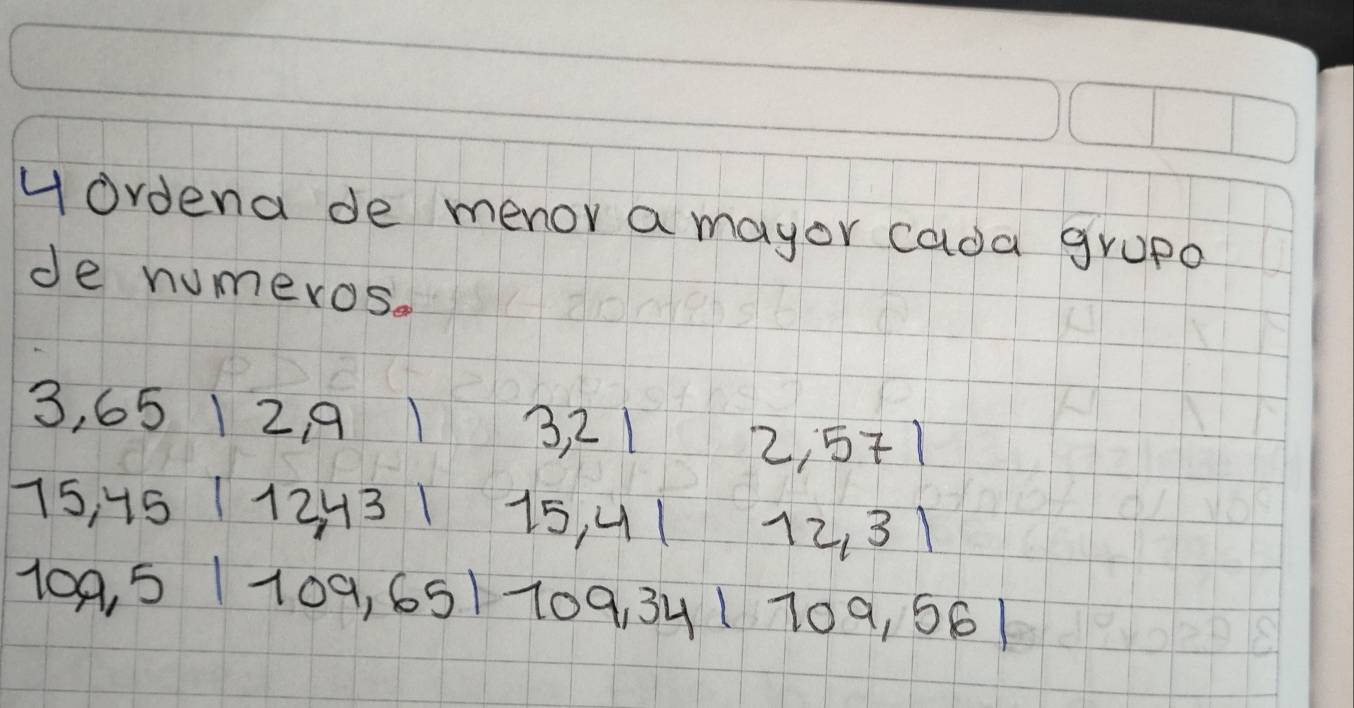 4 Ordena de menor a mayor cada grupo
de numeros.
3,65 | 2,9 | 3,2 | 2,57 |
15,45 | 12,43 | 15,4 | 12,3 |
109,5 | 109,65 | 109,34 | 109,56 |